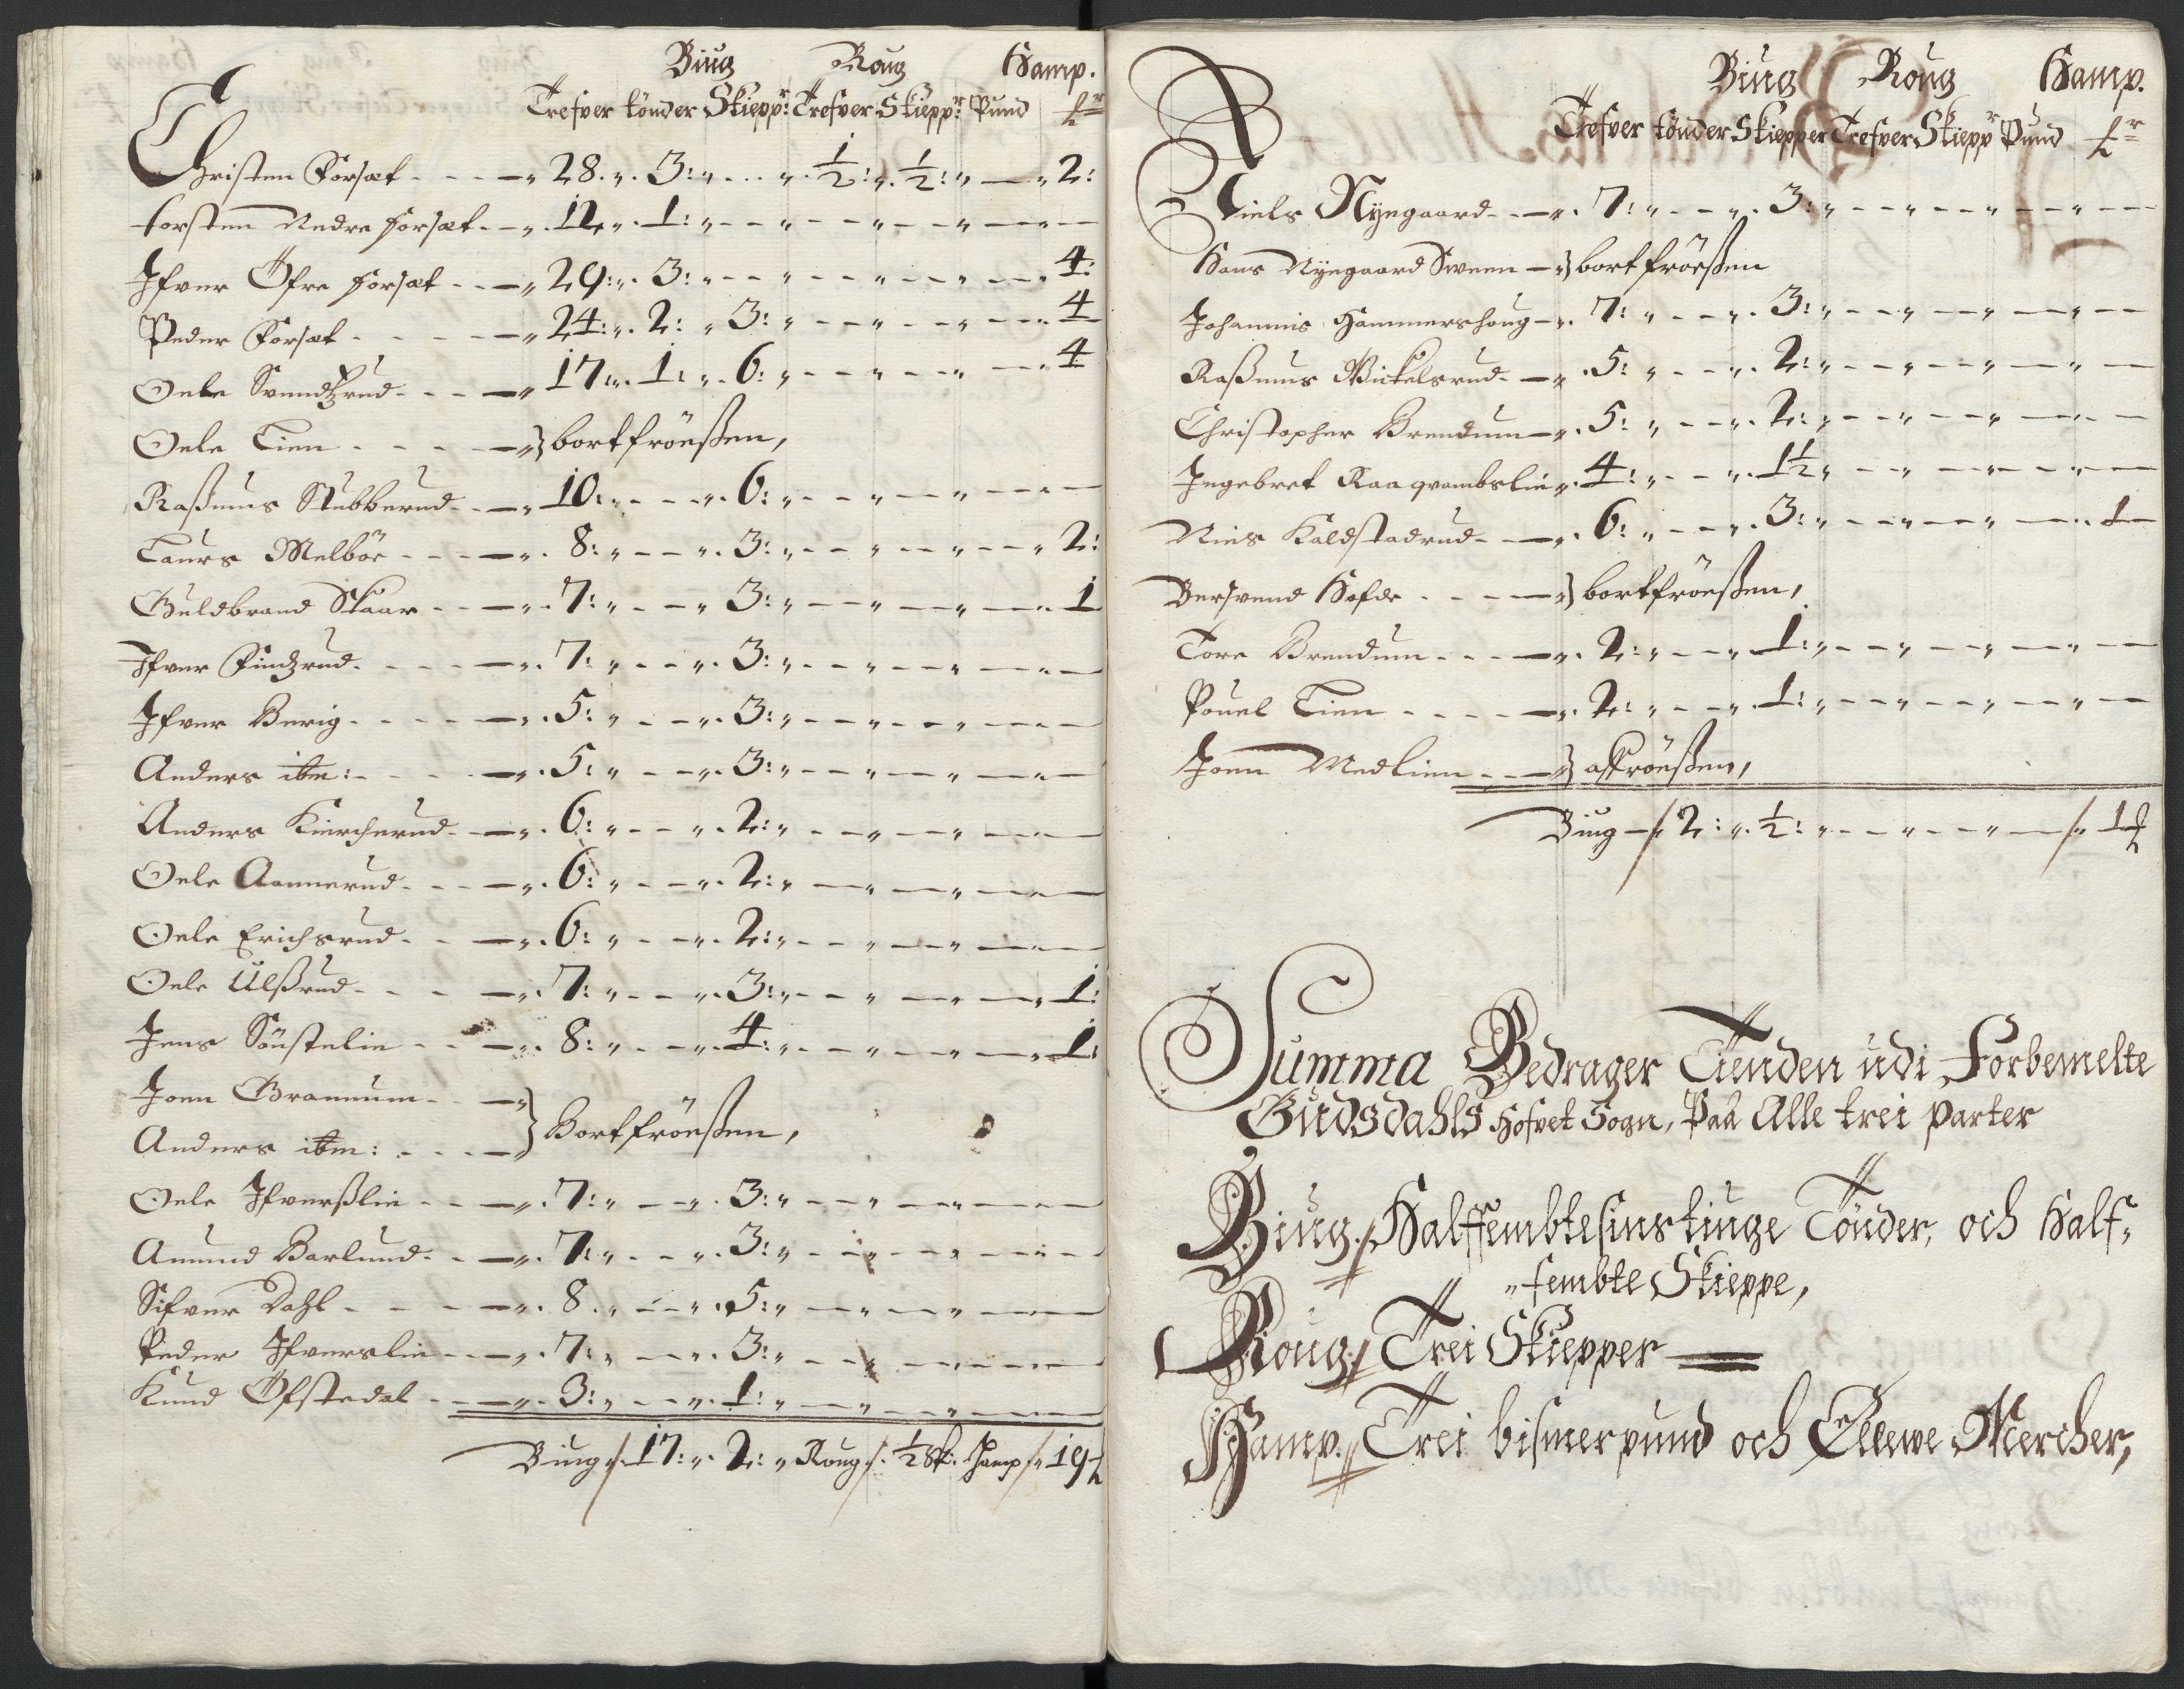 Biug Roug Hamp.
Trefver tönder Skiepp:r Trefver Skiepp:r Pund
Christen Forsæt - - - 28. 3: ½: ½: 2:
torsten Nedre forsæt - - 12. 1:
Jfver Öfre forsæt - - - 29: 3: 4:
Peder Forsæt - - - 24: 2: 3: 4
Oele Svendzrud - - - 17: 1: 6: 4
Oele Lien - - - } bortfröeßen,
Raßmus Stubberud - - 10: 6:
Laurs Melböe - - - 8: 3: 2:
Guldbrand Skaar - - - 7: 3: 1
Jfver Findzrud - - - 7: 3:
Jfver Berig - - - 5: 3:
Anders ibm: - - - 5: 3:
Anders Kiercherud - - 6: 2:
Oele Aannerud - - - 6: 2:
Oele Erichsrud - - - 6: 2:
Oele Ulßrud - - - 7: 3: 1:
Jens Söustelie - - - 8: 4: 1:
Joen Gramum - - }
Anders ibm: - - - } Bortfröeßen,
Oele Jfverßlie - - - 7: 3:
Amund Barlund - - - 7: 3:
Sifver Dahl - - - 8. 5:
Peder Jfverslie - - - 7: 3:
Knud Öfstedal - - - 3: 1:
Biug 17: 2: Roug ½ Sk: Hamp 19
Biug Roug Hamp.
Trefver tönder Skiepper Trefver Skiepp:r Pund
Niels Nyegaard - - 7: 3:
Hans Nyegaard Sveen - } bortfröeßen
Johannis Hammershoug - 7: 3:
Raßmus Mickelsrud - 5: 2:
Christopher Brendum - 5: 2:
Ingebret Raaqvambslie 4: 1½
Niels Kaldstadrud - - 6: 3: 1
Bersvend Hofde - - - } bortfröeßen,
Tore Brendum - - - 2: 1:
Pouel Lien - - - 2: 1:
Joen Medlien - - } affröeßen,
Biug 2: ½: 1
Summa Bedrager Tienden udi Forbemelte
Gudsdahls Hofvet Sogn, Paa Alle trei parter
Biug Halffembtesinstiuge Tönder, och Half-
fembte Skieppe,
Roug Trei Skiepper
Hamp. Trei bismerpund och Ellewe Mercher,